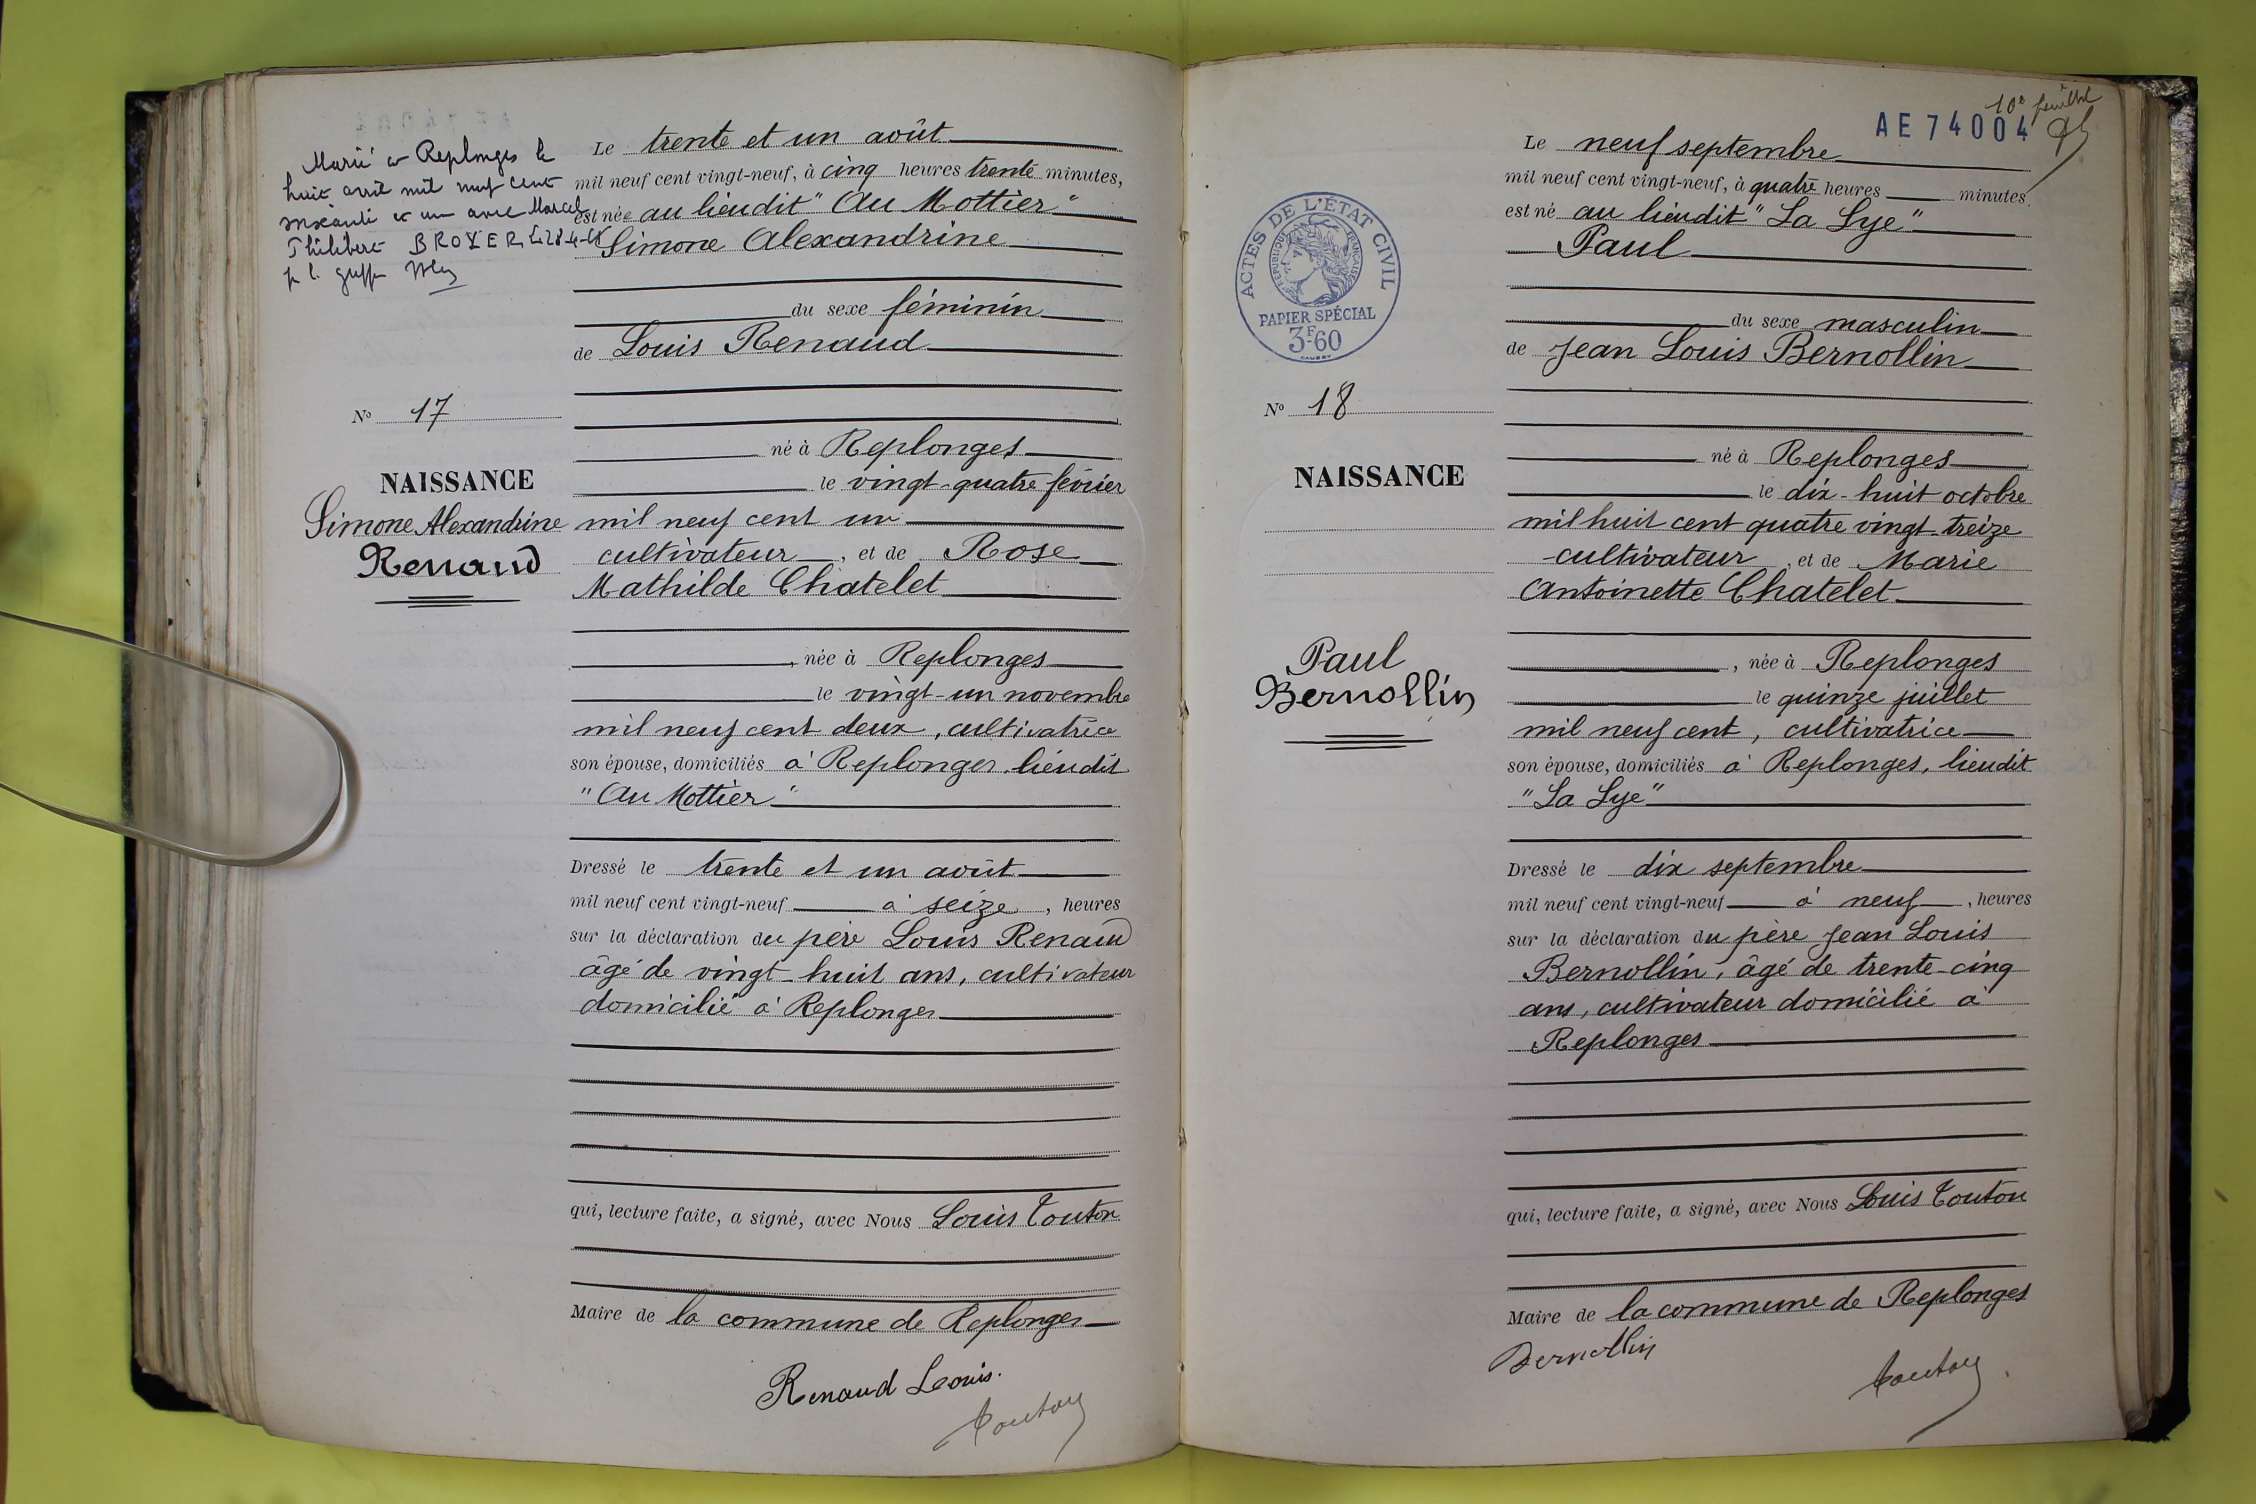 Marié à Replonges le
huit avril mil neuf cent
soixante et un avec Marcel
Philibert BROYER,
Le trente et un août
mil neuf cent vingt-neuf, à cinq heures trente minutes,
est née au lieudit "Au Mottier"
Simone Alexandrine
du sexe féminin
de Louis Renaud
né à Replonges
le vingt-quatre février
mil neuf cent un
cultivateur, et de Rose
Mathilde Chatelet
, née à Replonges
le vingt-un novembre
mil neuf cent deux, cultivatrice
son épouse, domiciliés à Replonges, lieudit
"Au Mottier"
Dressé le trente et un août
mil neuf cent vingt-neuf à seize, heures
sur la déclaration du père Louis Renaud
âgé de vingt-huit ans, cultivateur
domicilié à Replonges
qui, lecture faite, a signé, avec Nous Louis Touton
Maire de la commune de Replonges
Renaud Louis.
Touton
No 17
NAISSANCE
Simone Alexandrine
Renaud
10e feuillet
AE 74004
ACTES DE L'ÉTAT CIVIL
RÉPUBLIQUE FRANÇAISE
PAPIER SPÉCIAL
3F60
No 18
NAISSANCE
Paul
Bernollin
Le neuf septembre
mil neuf cent vingt-neuf, à quatre heures minutes,
est né au lieudit "La Lye"
Paul
du sexe masculin
de Jean Louis Bernollin
né à Replonges
le dix-huit octobre
mil huit cent quatre vingt-treize
cultivateur, et de Marie
Antoinette Chatelet
, née à Replonges
le quinze juillet
mil neuf cent, cultivatrice
son épouse, domiciliés à Replonges, lieudit
"La Lye"
Dressé le dix septembre
mil neuf cent vingt-neuf à neuf, heures
sur la déclaration du père Jean Louis
Bernollin, âgé de trente-cinq
ans, cultivateur domicilié à
Replonges
qui, lecture faite, a signé, avec Nous Louis Touton
Maire de la commune de Replonges
Bernollin
Touton